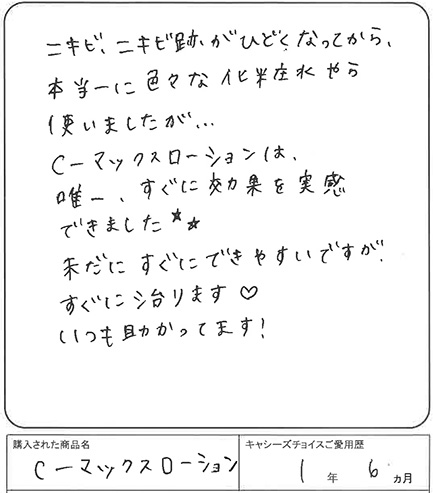 ニキビ、ニキビ跡がひどくなってから、
本当一に色々な化粧水やら
使いましたが...
Cーマックスローションは、
唯一、すぐに効果を実感
できました★★
未だにすぐにできやすいですが、
すぐに治ります♡
いつも助かってます!
購入された商品名
Cーマックスローション
キャシーズチョイスご愛用歴
1年6ヵ月